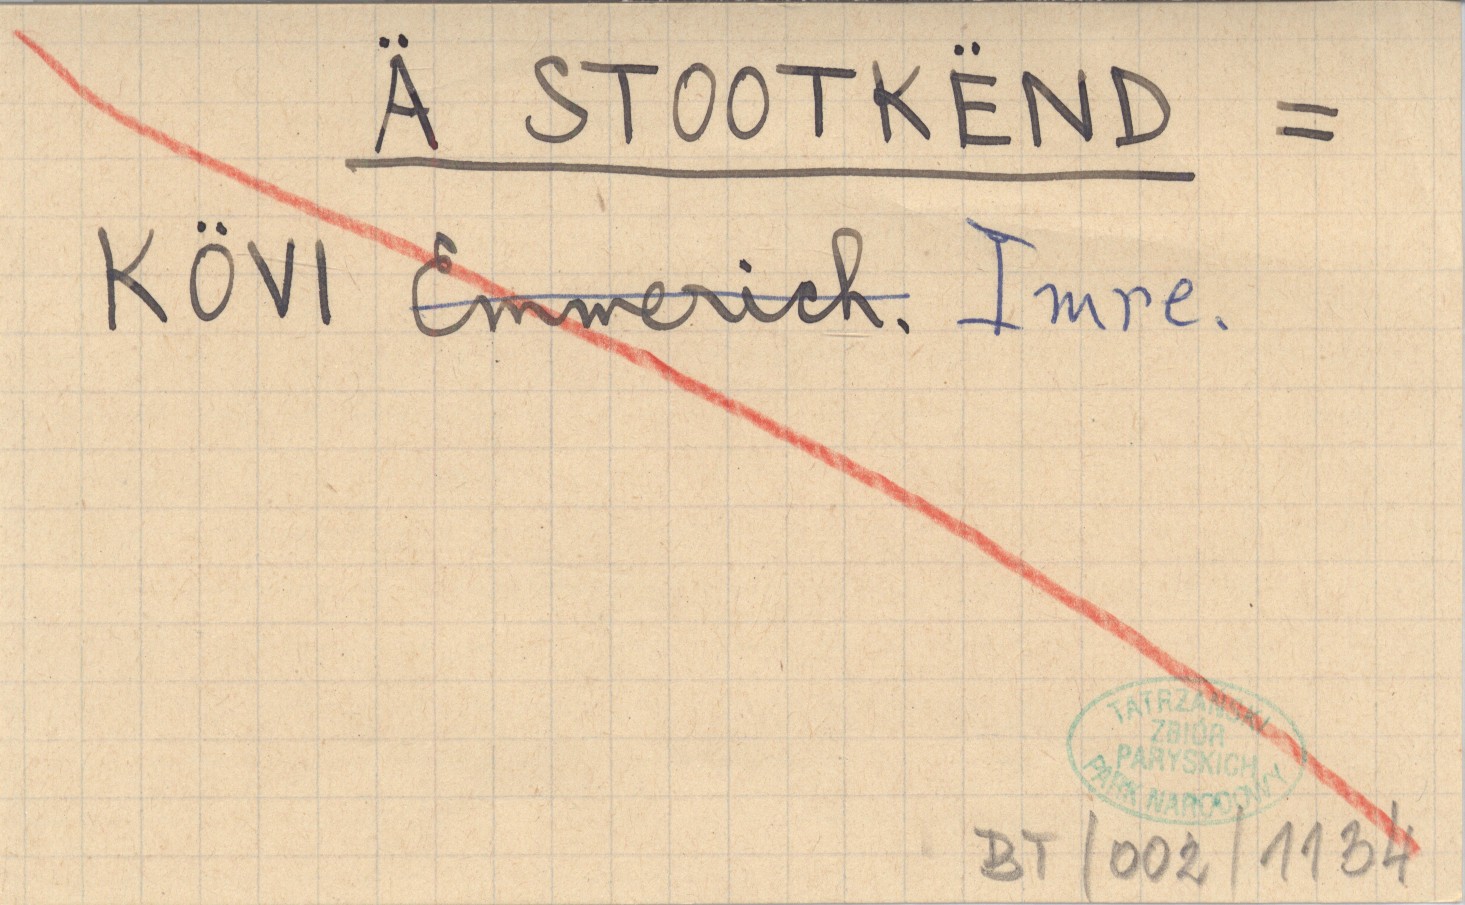 Ä STOOTKËND =
KÖVI Emmerich. Imre.
TATRZAŃSKI
ZBIÓR
PARYSKICH
PARK NARODOWY
BT/002/1134